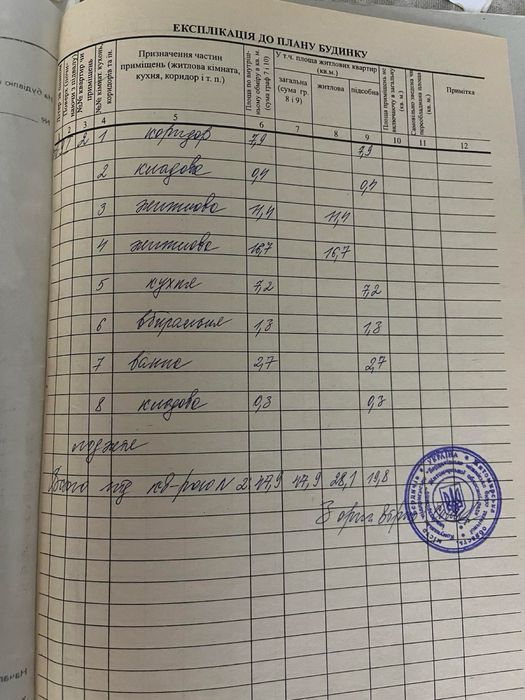 ЕКСПЛІКАЦІЯ ДО ПЛАНУ БУДИНКУ
№№ кварт чи приміщень
№№ кімнат, кухонь, коридорів та ін.
Призначення частин приміщень (житлова кімната, кухня, коридор і т. п.)
Площа по внутрішньому обміру в кв. м. (сума граф 7 і 10)
У т.ч. площа житлових квартир (кв.м.)
загальна (сума гр. 8 і 9)
житлова
підсобна
(кв. м.)
Примітка
2 3 4 5 6 7 8 9 10 11 12
1 2 1 коридор 7,9 7,9
2 кладова 0,4 0,4
3 житлова 11,4 11,4
4 житлова 16,7 16,7
5 кухня 7,2 7,2
6 вбиральня 1,3 1,3
7 ванна 2,7 2,7
8 кладова 0,3 0,3
лоджія
Всього по кв-рою № 2 47,9 47,9 28,1 19,8
УКРАЇНА